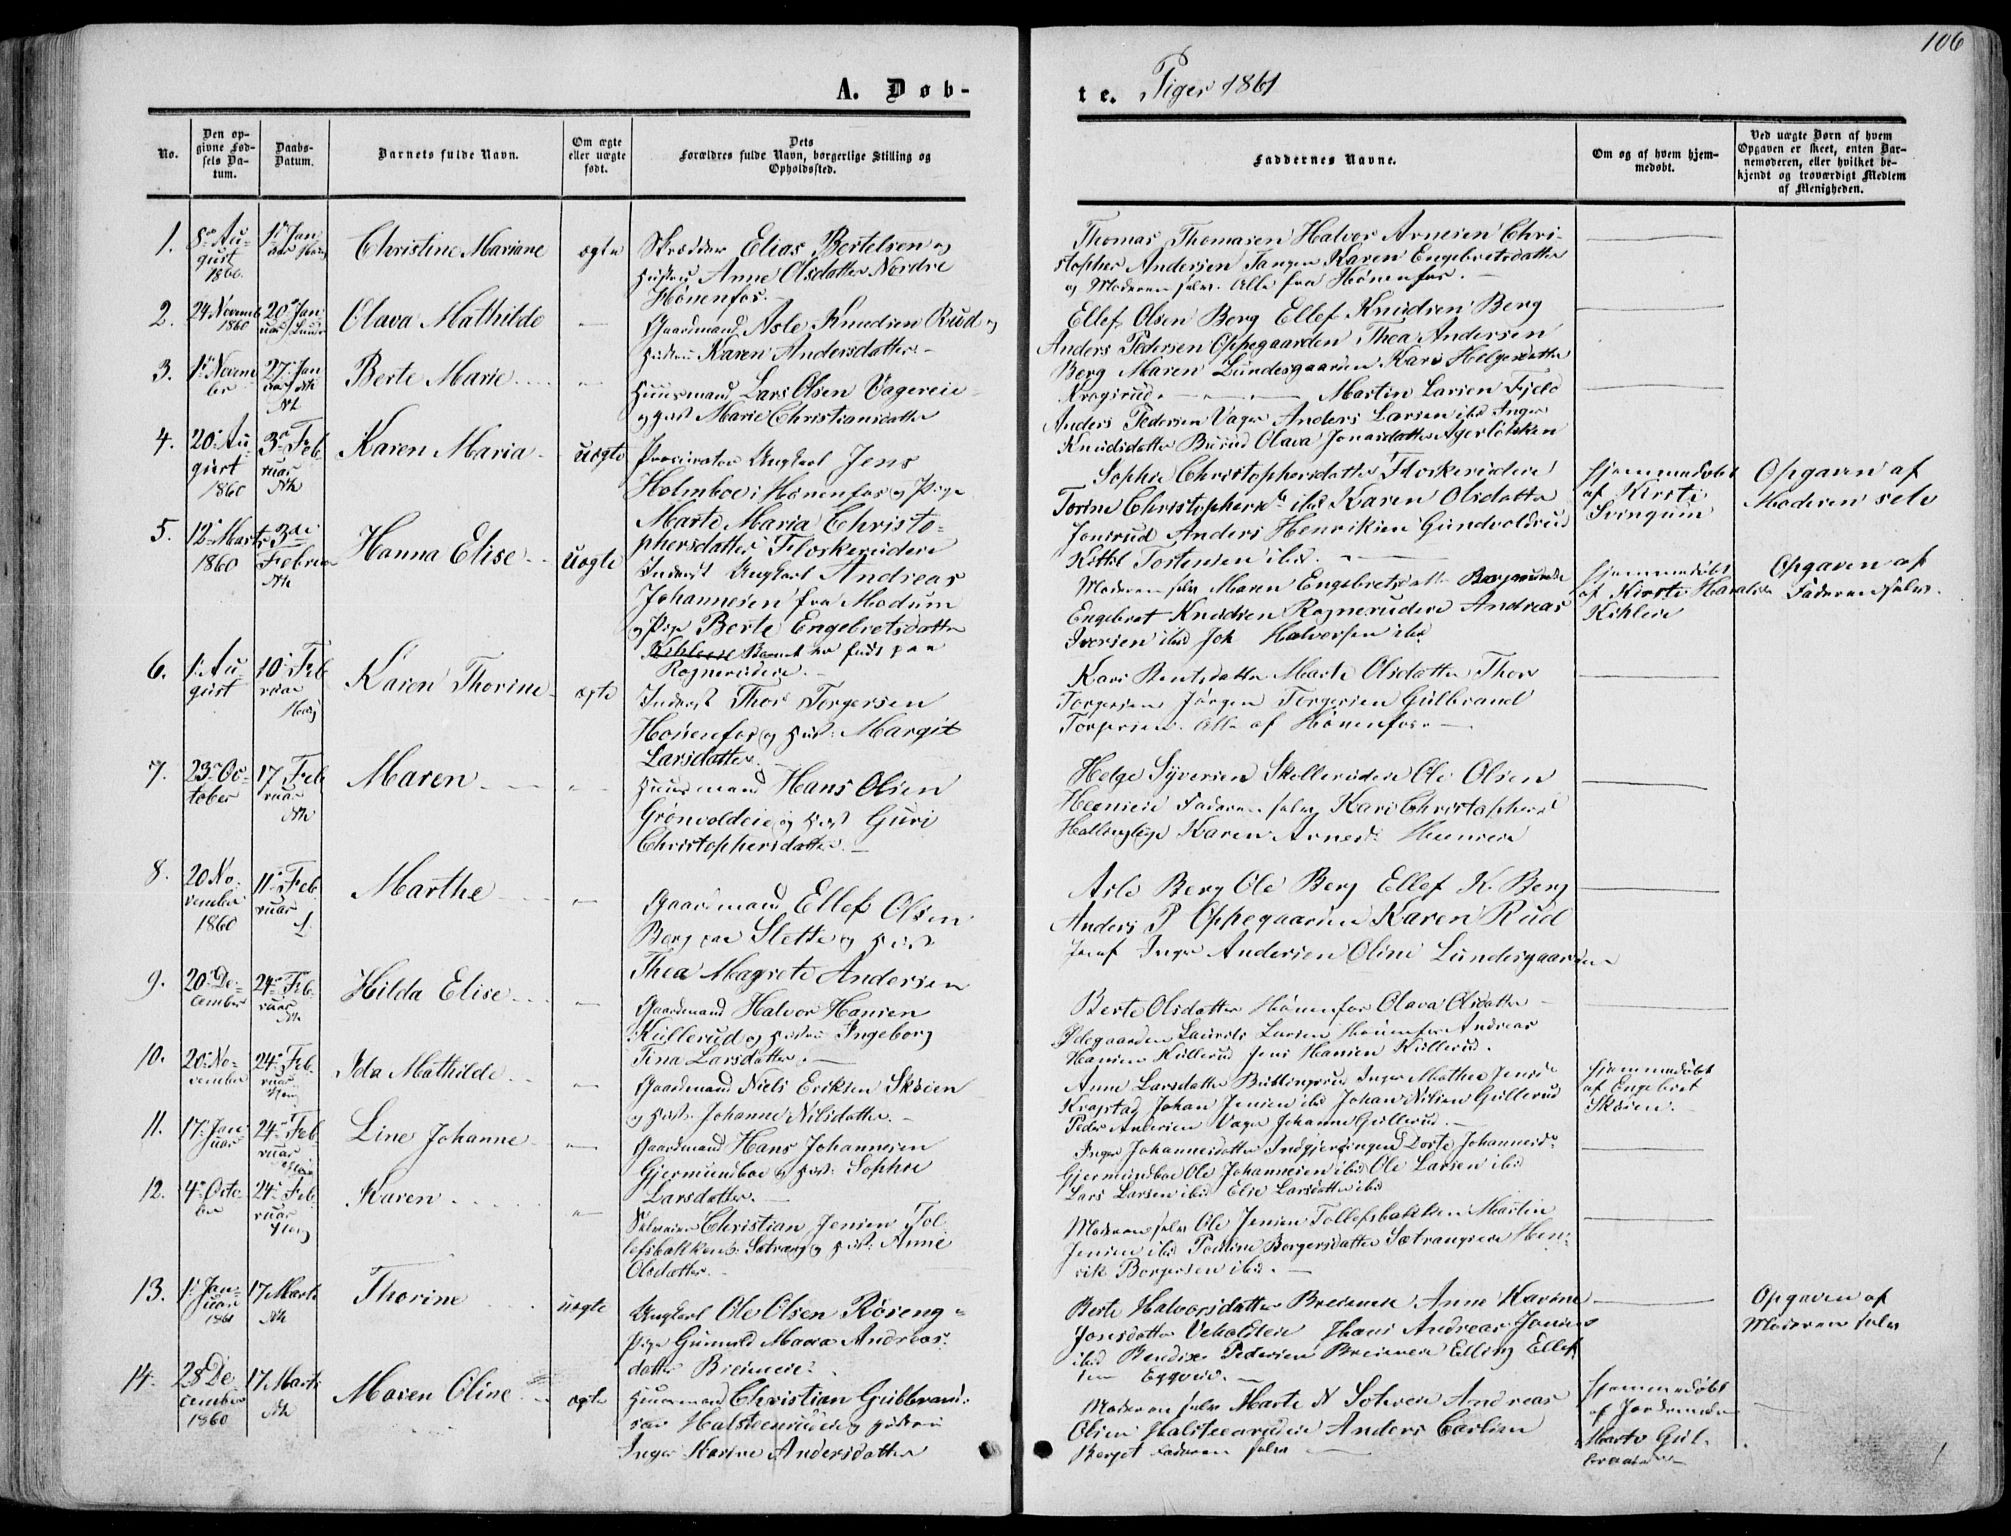 106
A. Døb-
te. Piger 1861
No.
Den op-
givne Fød-
sels Da-
tum.
Daabs-
Datum.
Barnets fulde Navn.
Om ægte
eller uægte
født.
Dets
Forældres fulde Navn, borgerlige Stilling og
Opholdssted.
Faddernes Navne.
Om og af hvem hjem-
medøbt.
Ved uægte Børn af hvem
Opgaven er skeet, enten Bar-
nemoderen, eller hvilket be-
kjendt og troværdigt Medlem
af Menigheden.
1.
Au-
gust
1860
1 Jan
Christine Mariane
ægte
Skrædder Elias Bertelsen og
Hustru Anne Olsdatter Nordre
Hönenfos.
Thomas Thomasen Halvor Arnesen Chri-
stopher Andersen Tangen Karen Engebretsdatter
og Moderen selv. Alle fra Hönenfos.
2.
24 Novemb
1860
20 Jan
uar
Olava Mathilde
Gaardmand Asle Knudsen Rud og
Hustru Karen Andersdatter
Ellef Olsen Berg Ellef Knudsen Berg
Anders Pedersen Oppegaarden Thea Andersen
Berg Maren Lundesgaarden Kari Helgesdatter
Kragsrud.
3.
1 Novem
ber
27 Jan
uar
Nh
Berte Marie
Huusmand Lars Olsen Vagereie
og Hust Marie Christiansdatter
Martin Larsen Fjeld
Anders Pedersen Vager Anders Larsen ibid Inger
Knudsdatter Busud Olava Jonasdatter
4.
20 Au
gust
1860
3 Feb
ruar
Nh
Karen Maria
uægte
Procurator Ungkarl Jens
Holmboe i Hönenfos og Pige
Marte Maria Christo-
phersdatter Floskerudeie
Sophie Christophersdatter Floskerudeie
Torine Christophersd ibid Karen Olsdatter
Jonsrud Anders Henriksen Gundvoldsrud
Kittil Torstensen ibid.
Hjemmedøbt
af Kirsti
Svingum
Opgaven af
Moderen selv
5.
12 Marts
1860
3die
Februar
Nh
Hanna Elise
uægte
Inderst Ungkarl Andreas
Johannesen fra Modum
og Pige Berte Engebretsdatter
Barnet er født paa
Rognerudeie.
Moderen selv Maren Engebretsdatter
Engebret Knudsen Rognerudeie Andreas
Iversen ibid Joh Halvorsen ibid
Hjemmedøbt
af Kirsti
Kihleie
Opgaven af
Faderen selv.
6.
1 Au
gust
10 Feb
ruar
Karen Thorine
ægte
Inderst Thor Torgersen
Hönenfos og Hust: Margit
Larsdatter.
Kari Berntsdatter Marte Olsdatter Thor
Torgersen Jörgen Torgersen Gulbrand
Torgersen. Alle af Hönenfos.
7.
23 Oc-
tober
17 Feb
ruar
Nh
Maren
Huusmand Hans Olsen
Grönvoldeie og Hust Guri
Christophersdatter.
Helge Syversen Skollerudeie Ole Olsen
Heeneie Faderen selv Kari Christophersd
Karen Arnesd. Heeneie
8.
20 No
vember
1860
11 Feb
ruar
Marthe
Gaardmand Ellef Olsen
Berg paa Slette og Hust
Thea Magrete Andersen
Asle Berg Ole Berg Ellef K. Berg
Anders P Oppegaarden Karen Rud
Inger Andersen Oline Lundesgaarden
9.
20 De-
cember
24 Feb.
ruar
Nh
Hilda Elise
Gaardmand Halvor Hansen
Kullerud og Hustru Ingeborg
Tina Larsdatter.
Berte Olsdatter Hönenfos Olava Olsdatter
Ödegaarden Laurits Larsen Hönenfos Andreas
Hansen Kullerud Jens Hansen Kullerud.
10.
20 No-
vember
24 Feb.
ruar
Ida Mathilde
Gaardmand Niels Eriksen Skøien
og Hust: Johanne Nilsdatter.
Anne Larsdatter Inger Mathea Jensd
Kragstad Johan Jensen ibid Johan Nilsen Gullerud
Peder Andersen Vager Johanne Gullerud.
Hjemmedøbt
af Engebret
Skøien.
11.
17 Jan
uar
24 Feb
ruar
Line Johanne
Gaardmand Hans Johannesen
Gjermundboe og Hust: Sophie
Larsdatter.
Inger Johannesdatter Dorte Johannesd
Gjermundboe Ole Johannesen ibid Ole Larsen ibid
Lars Larsen ibid Else Larsdatter ibid
12.
4 Octo-
ber
24 Feb.
ruar
Karen
Selveier Christian Jensen Tol-
lefsbakken og Hust: Anne
Olsdatter.
Moderen selv Ole Jensen Tollefsbakken Martin
Jensen ibid Borgersdatter Sætrangeie Hen-
rik Borgersen ibid.
13.
1 Jan-
uar
1861
17 Marts
Nh
Thorine
uægte
Ungkarl Ole Olsen Röseng
Pige Gunnild Maria Andreas-
datter Breieneie.
Berte Halvorsdatter Anne Karine
Jonsdatter Hans Andreas Jonsen
ibid Bendix Pedersen Elling Ellef
sen
Opgaven af
Moderen selv
14.
28 De
cember
1860
17 Marts
Nh
Maren Oline
ægte
Huusmand Christian Gulbrand-
sen Halsteenrudeie og Hustru
Inger Karine Andersdatter
Moderen selv Marte Andreas
Olsen Halsteenrudeie Anders Carlsen
Berget Faderen selv
Hjemmedøbt
af Jordemoder
Marte Gul-